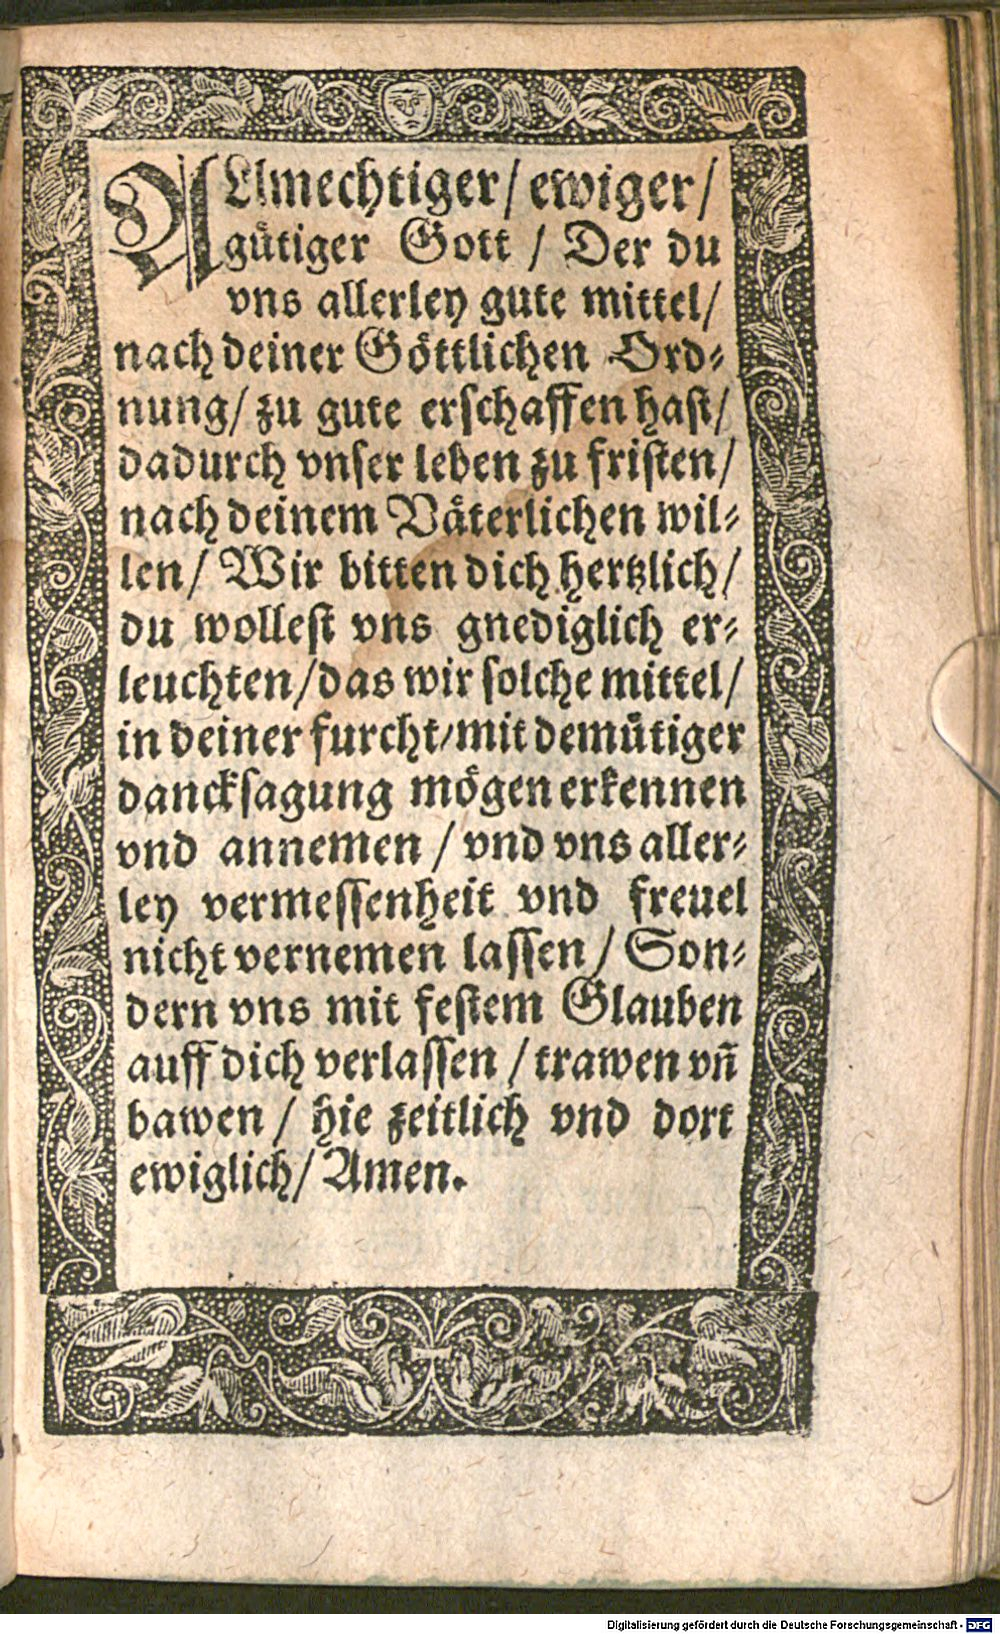 ALlmechtiger / ewiger /
gütiger Gott / Der du
vns allerley gute mittel /
nach deiner Göttlichen Ord⸗
nung / zu gute erschaffen hast /
dadurch vnser leben zu fristen /
nach deinem Väterlichen wil⸗
len / Wir bitten dich hertzlich /
du wollest vns gnediglich er⸗
leuchten / das wir solche mittel /
in deiner furcht / mit demütiger
dancksagung mögen erkennen
vnd annemen / vnd vns aller⸗
ley vermessenheit vnd freuel
nicht vernemen lassen / Son⸗
dern vns mit festem Glauben
auff dich verlassen / trawen vñ
bawen / hie zeitlich vnd dort
ewiglich / Amen.
Digitalisierung gefördert durch die Deutsche Forschungsgemeinschaft - DFG